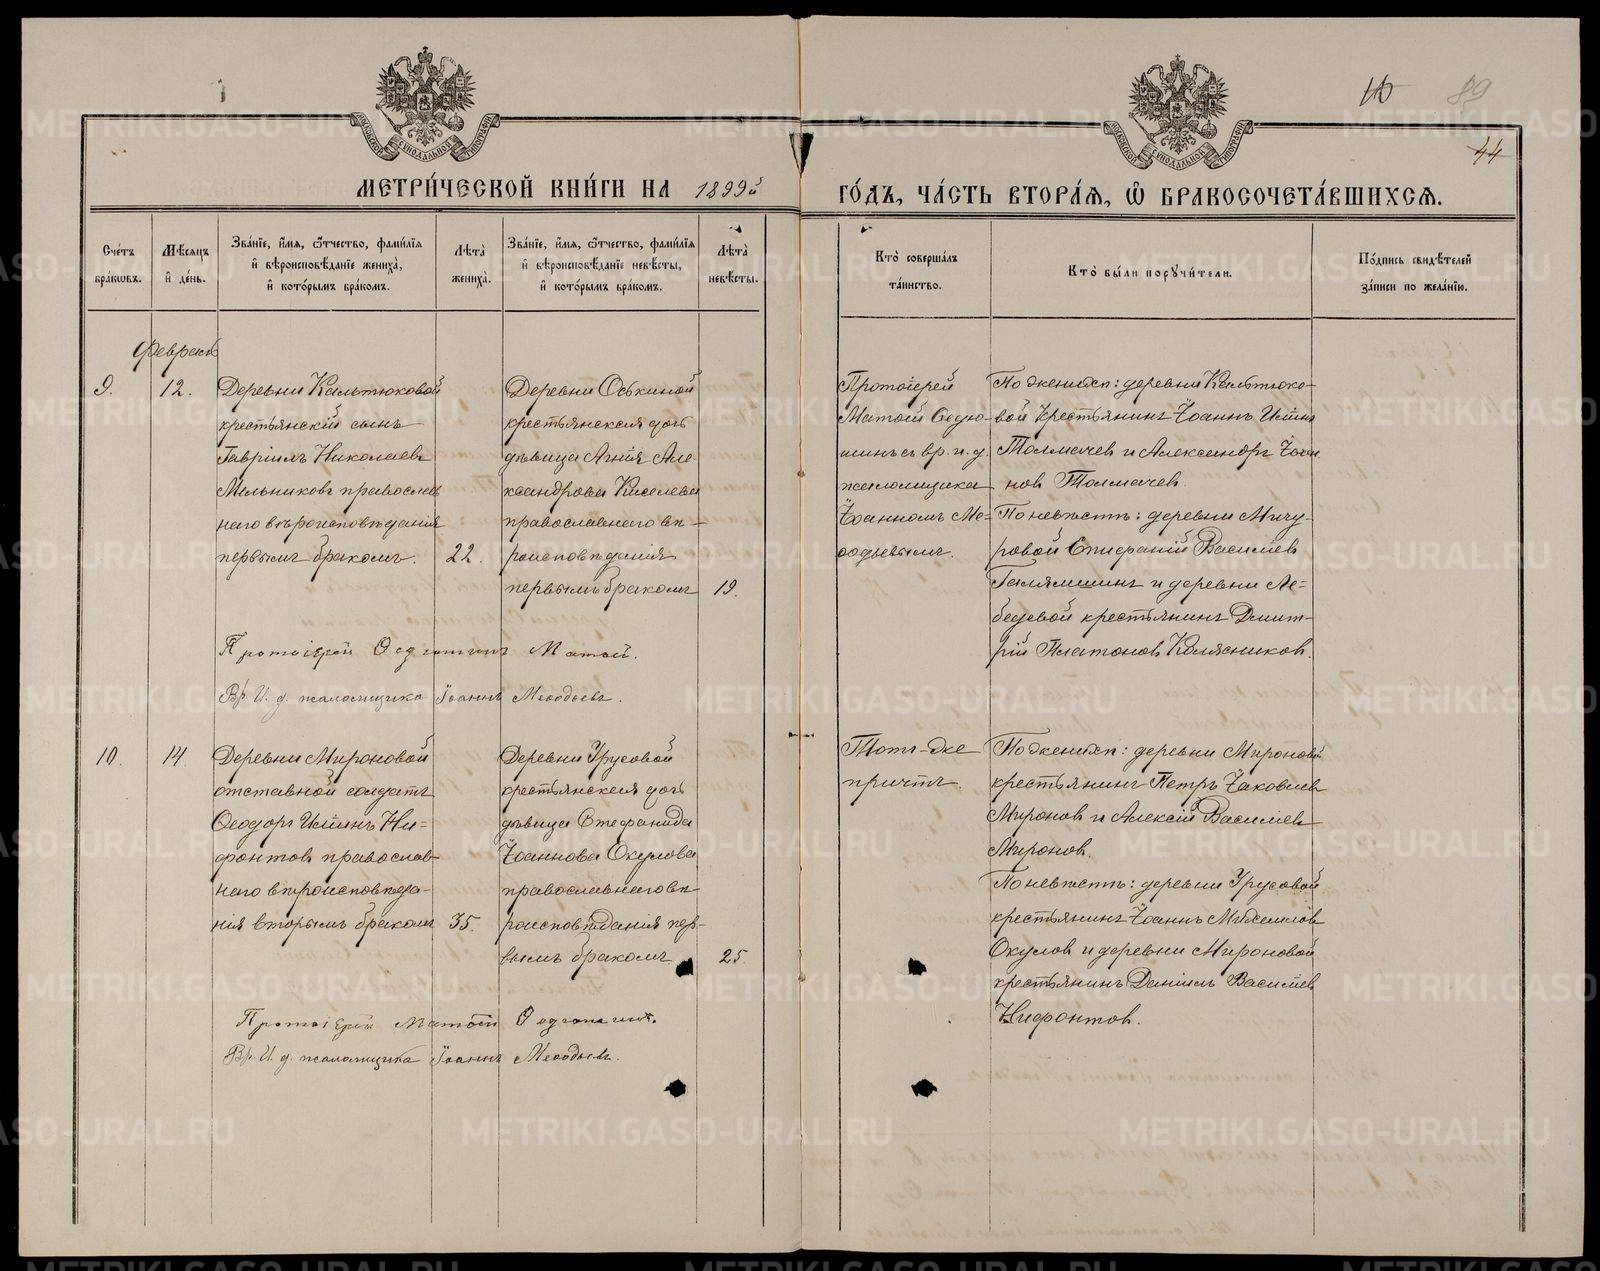 МЕТРИ́ЧЕСКОЙ КНИ́ГИ НА 1899й
ГО́ДЪ, ЧА́СТЬ ВТОРА́Ѧ, Ѡ҆ БРАКОСОЧЕТА́ВШИХСѦ.
89
44
МОСКОВСКОЙ СѴНОДАЛЬНОЙ ТИПОГРАФІИ
МОСКОВСКОЙ СѴНОДАЛЬНОЙ ТИПОГРАФІИ
Сче́тъ
бра́кѡвъ.
Мѣ́сѧцъ
и҆ де́нь.
Зва́нїе, и҆́мѧ, ѻ҆́тчество, фами́лїѧ
и҆ вѣроисповѣ́данїе жениха̀,
и҆ кото́рымъ бра́комъ.
Лѣ́та̀
жениха̀.
Зва́нїе, и҆́мѧ, ѻ҆́тчество, фами́лїѧ
и҆ вѣроисповѣ́данїе невѣ́сты,
и҆ кото́рымъ бра́комъ.
Лѣ́та̀
невѣ́сты.
Кто̀ соверша́лъ
та́инство.
Кто̀ бы́ли порꙋчи́тели.
По́дпись свидѣ́телей
за́писи по жела́нїю.
Февраль
9.
12.
Деревни Кальтюковой
крестьянскій сынъ
Гавріилъ Николаевъ
Мельниковъ православ
наго вѣроисповѣданія
первымъ бракомъ.
22.
Деревни Оськиной
крестьянская дочь
дѣвица Агнія Але
ксандрова Киселева
православнаго вѣ-
роисповѣданія
первымъ бракомъ
19.
Протоіерей
вр. и. д.
псаломщика
Іоанномъ Ме-
ѳодьевымъ.
По женихѣ: деревни Кальтюко-
вой крестьянинъ Іоаннъ Іустинъ
Толмачев и Александръ Іоан
нов Толмачев.
По невѣстѣ: деревни Мичу-
ровой Епифаній Василіев
Галямшинъ и деревни Ле-
бедевой крестьянинъ Димит-
рій Платонов Колясников.
Протоіерей Матѳій.
Вр. И. д. псаломщика Іоаннъ Меѳодьевъ.
10.
14.
Деревни Мироновой
отставной солдатъ
Ѳеодоръ Іустинъ Ни-
фонтов православ-
наго вѣроисповѣда-
нія вторымъ бракомъ
35.
Деревни Урусовой
крестьянская дочь
дѣвица Стефанида
Іоаннова Окулова
православнаго вѣ-
роисповѣданія пер-
вымъ бракомъ
25.
Тотъ-же
причтъ.
По женихѣ: деревни Мироновой
крестьянинъ Петръ Іаковлев
Миронов и Алексій Василіев
Миронов.
По невѣстѣ: деревни Урусовой
крестьянинъ Іоаннъ
Окулов и деревни Мироновой
крестьянинъ Даніилъ Василіев
Нифонтов.
Протоіерей Матѳій
Вр. И. д. псаломщика Іоаннъ Меѳодьевъ.
METRIKI.GASO-URAL.RU